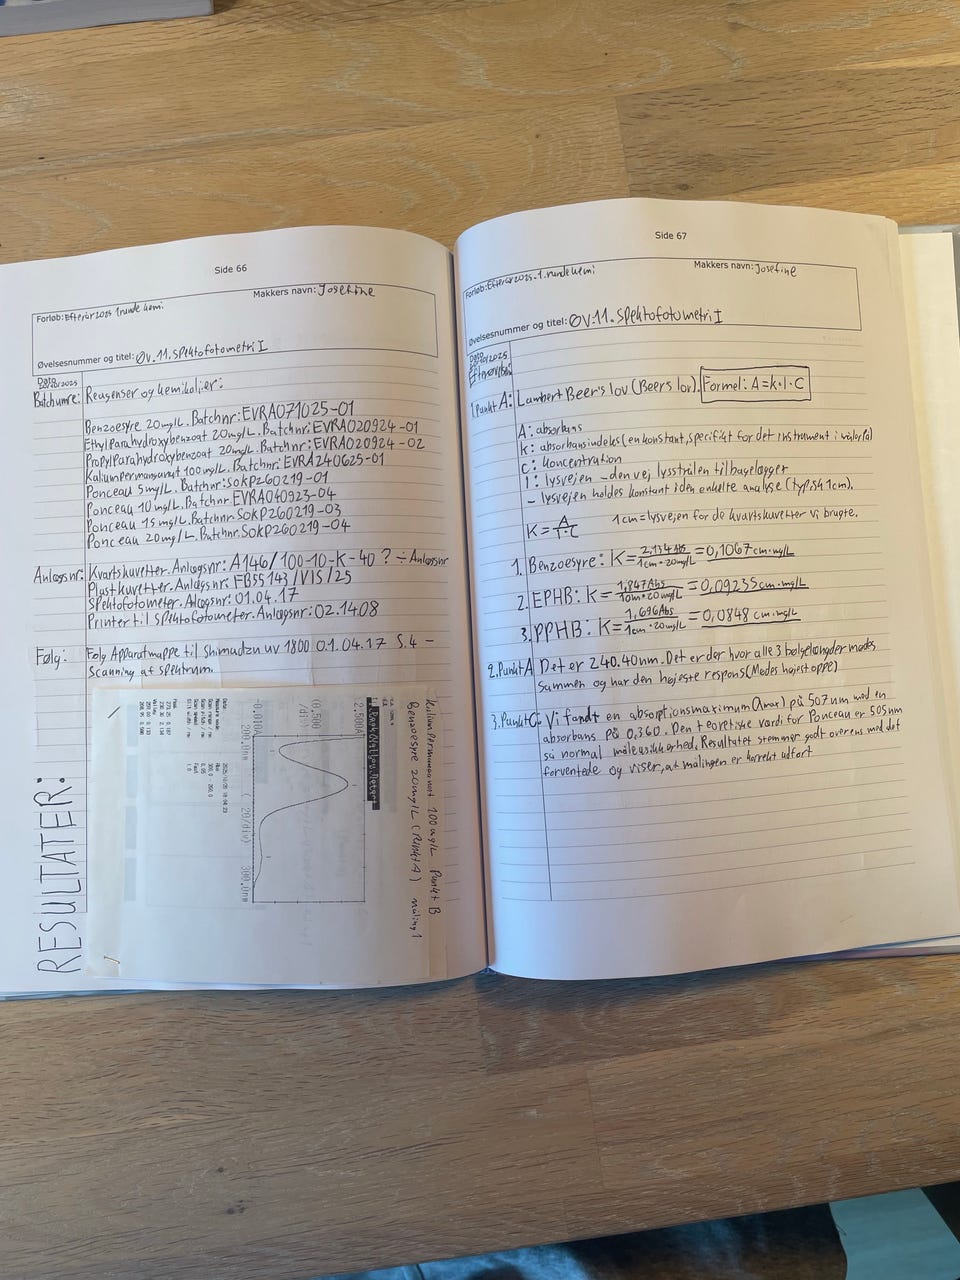 Side 66
Forløb: Efterår 2025 1 runde kemi
Makkers navn: Josefine
Øvelsesnummer og titel: Øv. 11. Spektofotometri I
Dato
Batchnumre: Reagenser og kemikalier:
Benzoesyre 20mg/L. Batchnr: EVRA071025-01
Ethylparahydroxybenzoat 20mg/L. Batchnr: EVRA020924-01
Propylparahydroxybenzoat 20mg/L. Batchnr: EVRA020924-02
Kaliumpermanganat 100mg/L. Batchnr: EVRA240625-01
Ponceau 5mg/L. Batchnr: SOKP260219-01
Ponceau 10 mg/L. Batchnr EVRA040923-04
Ponceau 15 mg/L. Batchnr: SOKP260219-03
Ponceau 20mg/L. Batchnr: SOKP260219-04
Anlægsnr: Kvartskuvetter. Anlægsnr: A146/100-10-K-40 ? ÷ Anlægsnr
Plastkuvetter. Anlægsnr: FB55143/VIS/25
Spektofotometer. Anlægsnr: 01.04.17
Printer til spektofotometer. Anlægsnr: 02.1408
Følg: Følg Apparatmappe til Shimadzu uv 1800 01.04.17 S.4 -
Scanning af spektrum.
RESULTATER:
Kaliumpermanganat 100mg/L Punkt B
Benzoesyre 20mg/L (Punkt A) måling 1
2.500A
(0.500
/div)
-0.010A
200.0nm
( 20/div)
300.0nm
Side 67
Forløb: Efterår 2025. 1. runde kemi
Makkers navn: Josefine
Øvelsesnummer og titel: ØV.11. Spektofotometri I
Dato
1 Punkt A: Lambert Beer's lov (Beers lov). Formel: A = k · l · C
A: absorbans
k: absorbansindeks (en konstant, specifikt for det instrument i
c: koncentration
l: lysvejen - den vej lysstrålen tilbagelægger
- lysvejen holdes konstant i den enkelte analyse (typisk 1cm).
K = A/l·C 1cm = lysvejen for de kvartskuvetter vi brugte.
1. Benzoesyre: K = 2,134Abs/1cm · 20mg/L = 0,1067 cm·mg/L
2. EPHB: K = 1,847Abs/10m · 20mg/L = 0,09235 cm·mg/L
3. PPHB: K = 1,696Abs/1cm · 20mg/L = 0,0848 cm·mg/L
2. Punkt A Det er 240.40nm. Det er der hvor alle 3 bølgelængder mødes
sammen og har den højeste respons (Mødes højest oppe)
3. Punkt C Vi fandt en absorptionsmaximum (λmax) på 507nm med en
absorbans på 0,360. Den teoretiske værdi for Ponceau er 505nm
så normal måleusikkerhed. Resultatet stemmer godt overens med det
forventede og viser, at målingen er korrekt udført